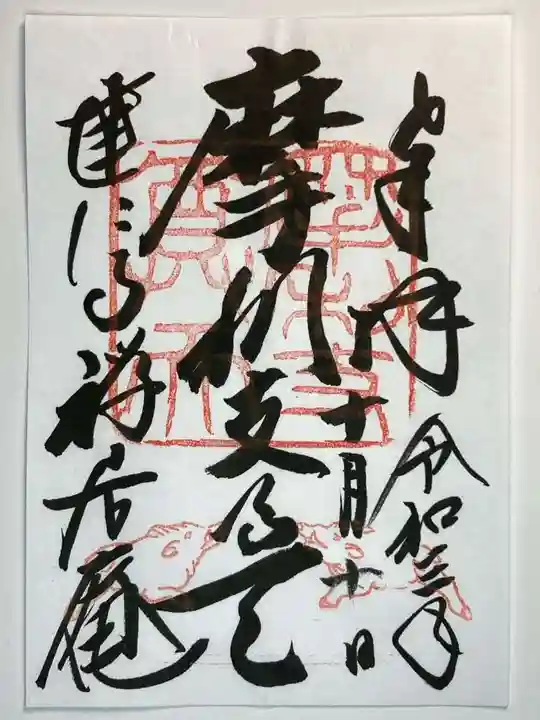 奉拝 令和三年
十月十一日
摩利支尊天
建仁寺 禅居庵